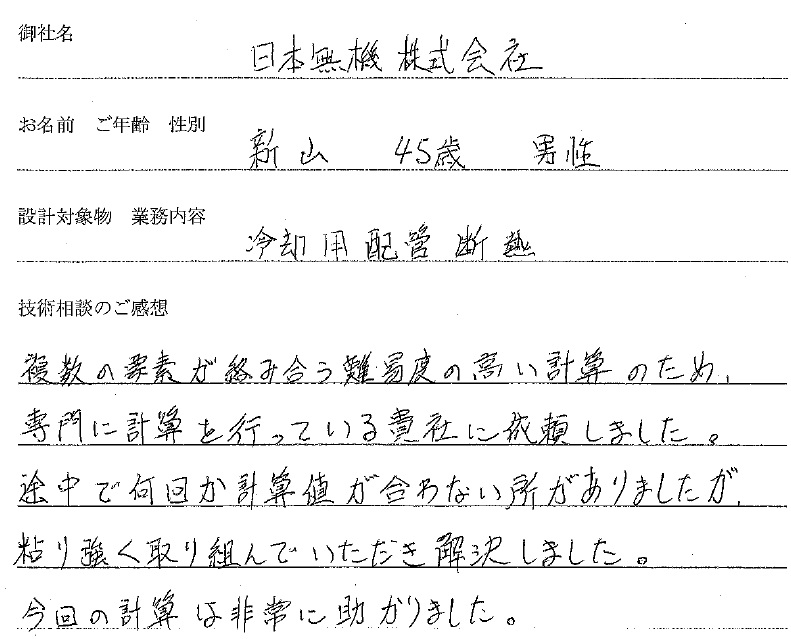 御社名
日本無機 株式会社
お名前 ご年齢 性別
新山 45歳 男性
設計対象物 業務内容
冷却用配管断熱
技術相談のご感想
複数の要素が絡み合う難易度の高い計算のため、
専門に計算を行っている貴社に依頼しました。
途中で何回か計算値が合わない所がありましたが、
粘り強く取り組んでいただき解決しました。
今回の計算は非常に助かりました。